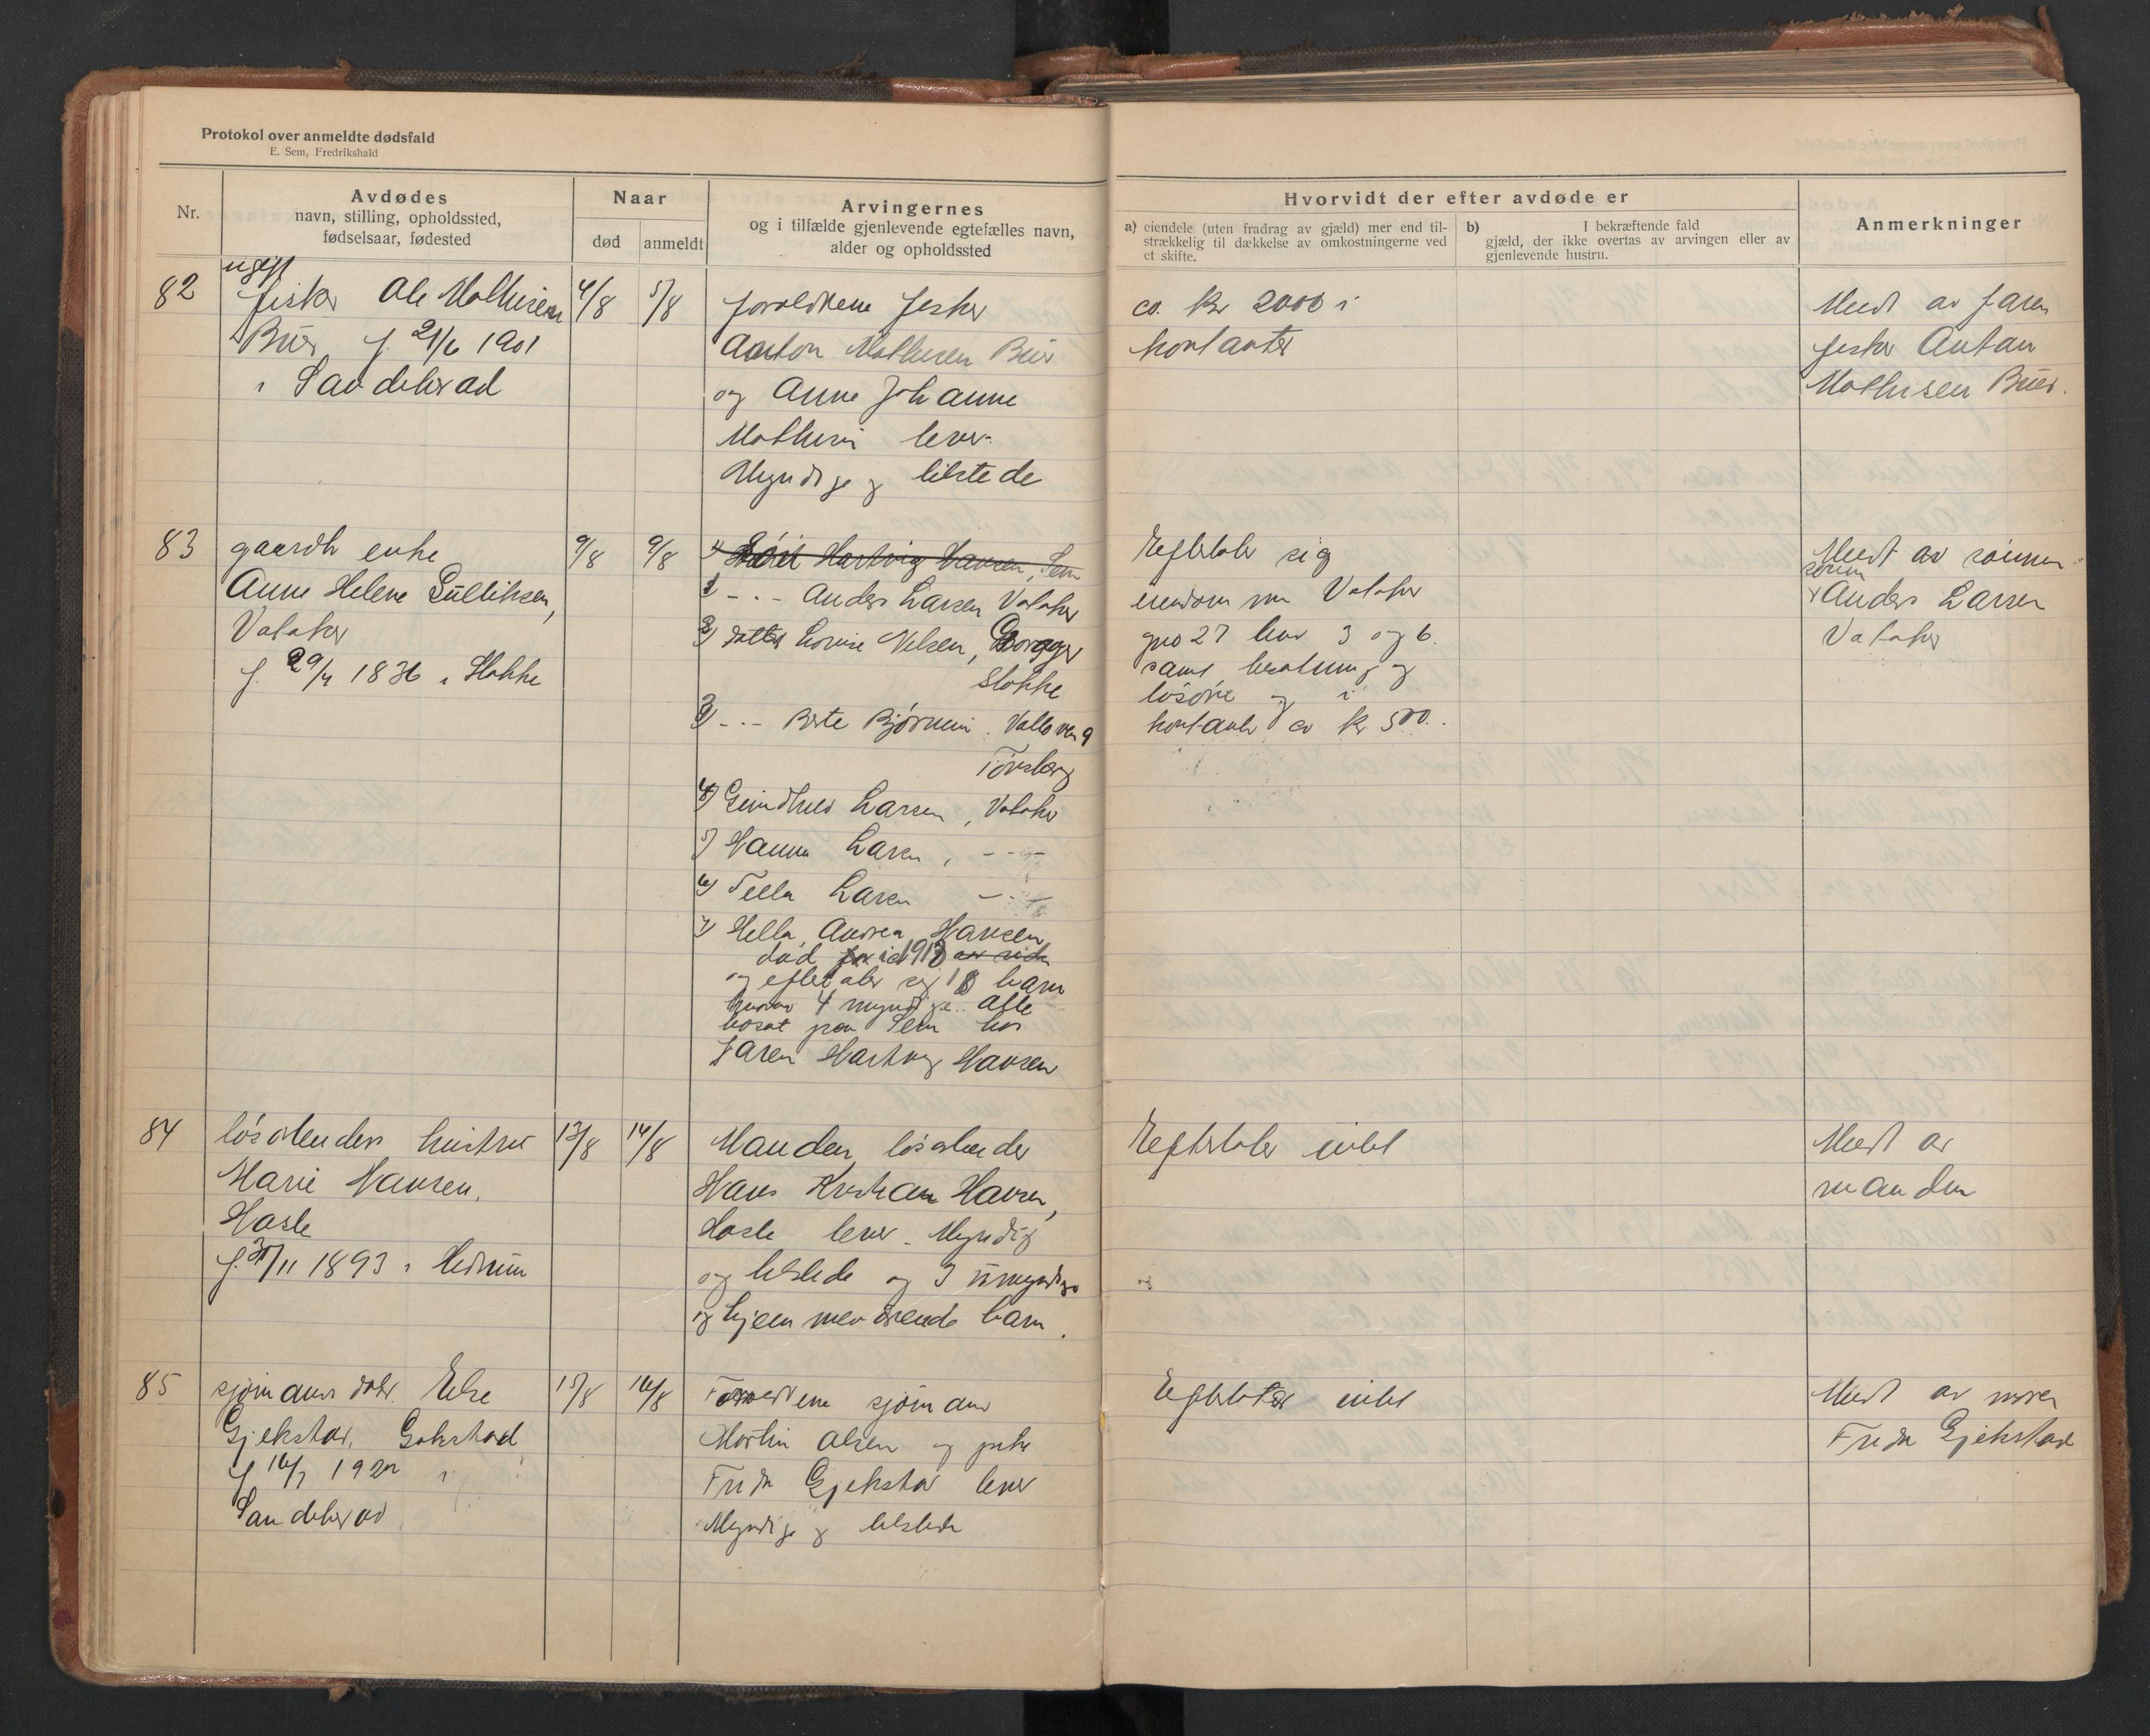 Protokol over anmeldte dødsfald
E. Sem, Fredrikshald
Nr.
Avdødes
navn, stilling, opholdssted,
fødselsaar, fødested
Naar
død
anmeldt
Arvingernes
og i tilfælde gjenlevende egtefælles navn,
alder og opholdssted
Hvorvidt der efter avdøde er
a) eiendele (uten fradrag av gjæld) mer end til-
strækkelig til dækkelse av omkostningerne ved
et skifte.
b) I bekræftende fald
gjæld, der ikke overtas av arvingen eller av
gjenlevende hustru.
Anmerkninger
82
ugift
fisker Ole Mathisen
Buer f. 21/6 1901
i Sandeherad
4/8
5/8
forældrene fisker
Anton Mathisen Buer
og Anne Johanne
Mathisen lever.
Myndige og tilstede
ca. kr 2000 i
kontanter
Meldt av faren
fisker Anton
Mathisen Buer.
83
gaardbr enke
Anne Helene Gulliksen,
Valaker
f. 29/4 1836 i Stokke
9/8
9/8
1) Hartvig Hansen, Sem
1) - . - Anders Larsen Valaker
2) datter Lovise Nilsen, 
Stokke
3) - . - Berte Bjørnum. Valløven 9
Tønsberg
4) Larsen, Valaker
5) Hanna Larsen, - . -
6) Tella Larsen - . -
7) Hella Andrea Hansen
død i 1918
og efterlater sig 8 barn
hvorav 4 myndige. Alle
bosat paa Sem hos
Faren Hartvig Hansen
Efterlater sig
eiendommen Valaker
gno 27 bno 3 og 6.
samt besætning og
løsøre og i
kontanter ca kr 500.
Meldt av sønnen
sønn
Anders Larsen
Valaker
84
løsarbeiders hustru
Marie Hansen,
Hasle
f. 30/11 1893 i Hedrum
13/8
14/8
Manden løsarbeider
Hans Kristian Hansen,
Hasle lever. Myndig
og tilstede og 3 umyndige
og hjemmeværende barn.
Efterlater intet
Meldt av
manden
85
sjømanns dat. Else
Gjekstad, Gokstad
f 16/7 192
Sandeherad
15/8
16/8
Forældrene sjømand
Martin Olsen og pike
Frida Gjekstad lever
Myndige og tilstede
Efterlater intet
Meldt av moren
Frida Gjekstad